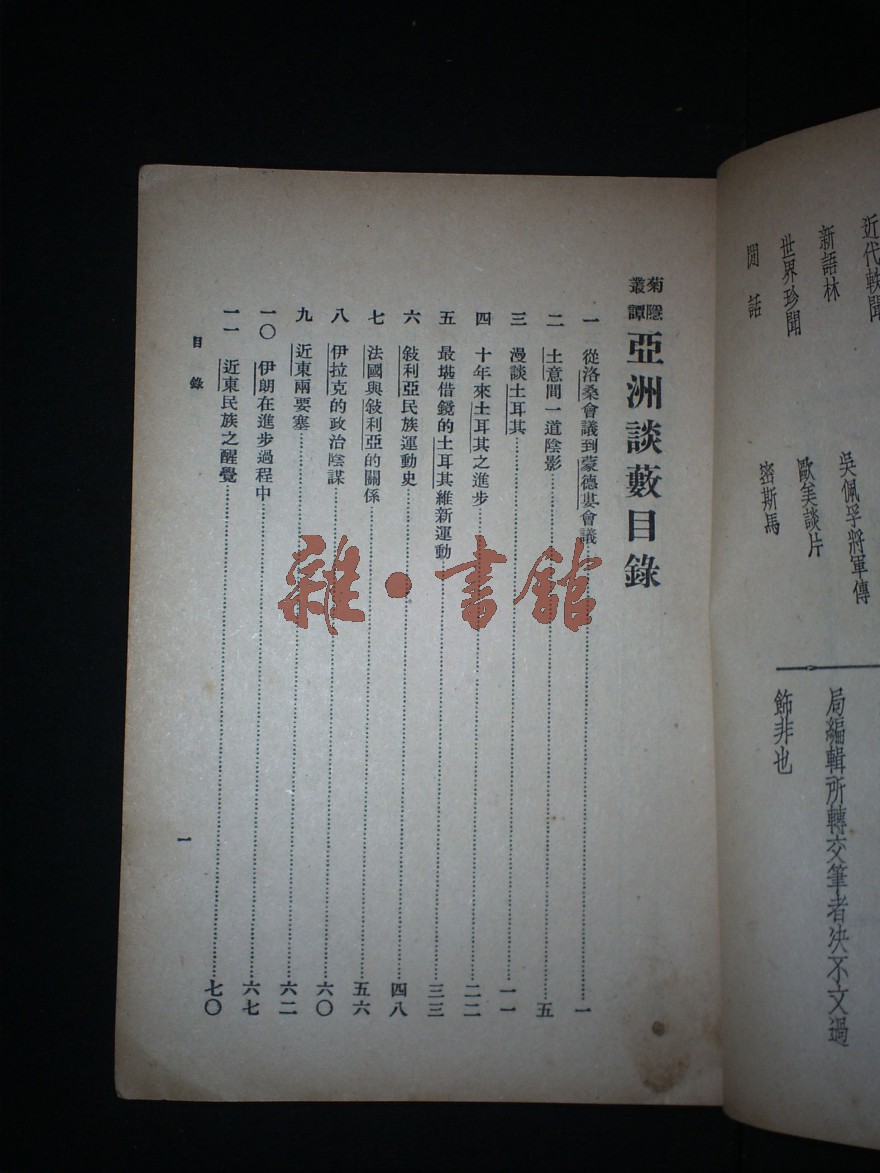 近代軼聞
新語林
世界珍聞
閒話
吳佩孚將軍傳
歐美談片
密斯馬
局編輯所轉交筆者決不文過
飾非也
菊隱叢譚 亞洲談藪目錄
一 從洛桑會議到蒙德婁會議 一
二 土意間一道陰影 五
三 漫談土耳其 一一
四 十年來土耳其之進步 二二
五 最堪借鏡的土耳其維新運動 三三
六 敍利亞民族運動史 四八
七 法國與敍利亞的關係 五六
八 伊拉克的政治陰謀 六〇
九 近東兩要塞 六二
一〇 伊朗在進步過程中 六七
一一 近東民族之醒覺 七〇
目錄
一
雜·書館